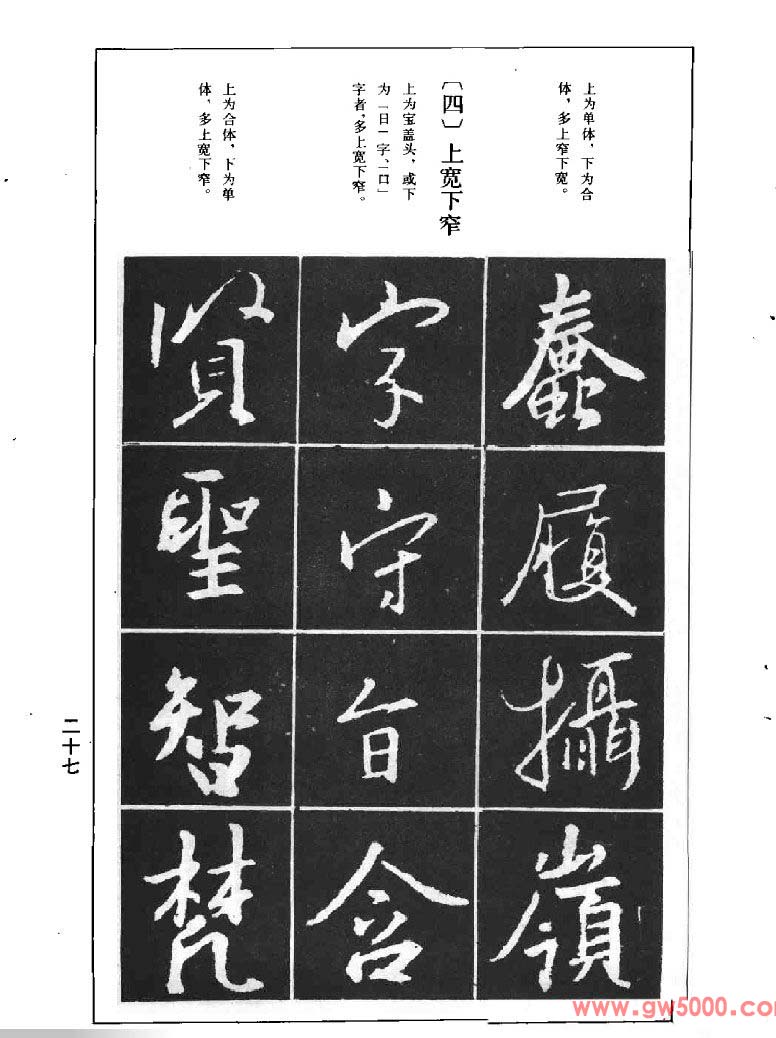 上为单体，下为合
体，多上窄下宽。
〔四〕上宽下窄
上为宝盖头，或下
为「日」字、「口」
字者，多上宽下窄。
上为合体，下为单
体，多上宽下窄。
蠢
履
攝
嶺
字
守
旨
含
賢
聖
智
梵
二十七
www.gw5000.com